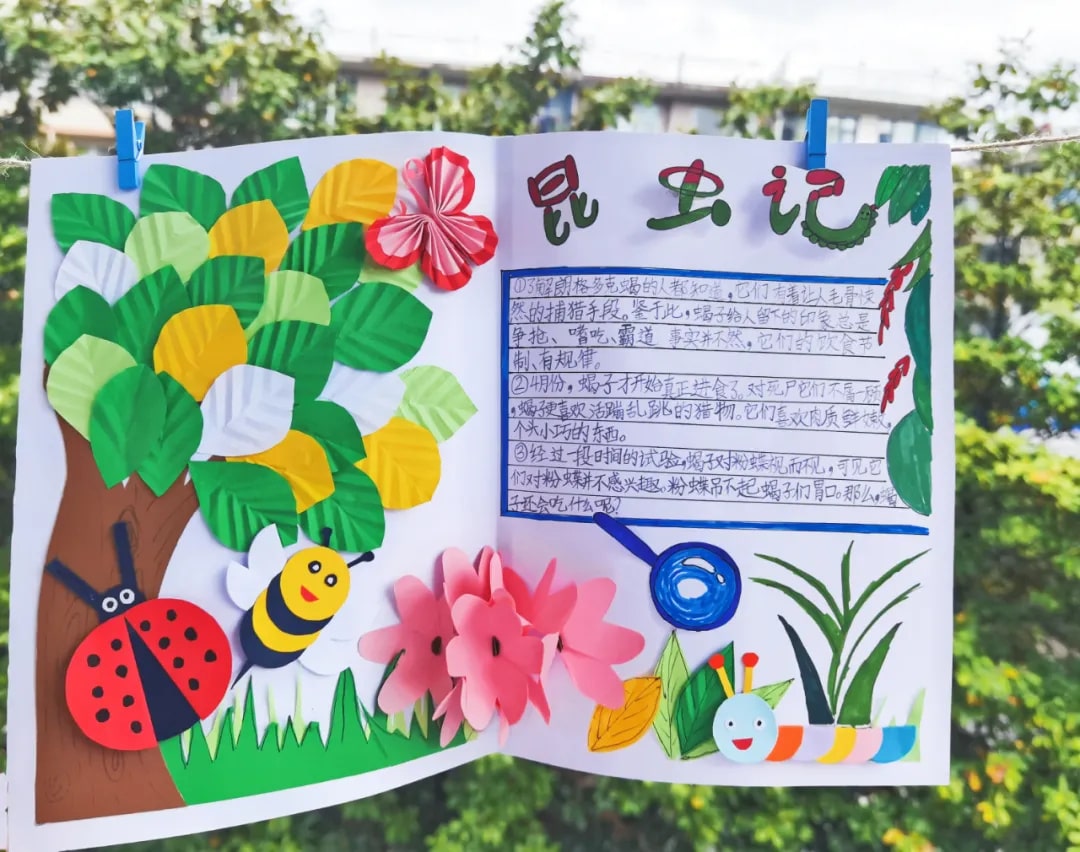 昆虫记
①了解朗格多克蝎的人都知道,它们有着让人毛骨悚
然的捕猎手段。鉴于此,蝎子给人留下的印象总是
争抢、嗜吃、霸道 事实并不然,它们的饮食节
制、有规律。
②4月份,蝎子才开始真正进食了。对死尸它们不屑一顾
,蝎子更喜欢活蹦乱跳的猎物。它们喜欢肉质鲜嫩,
个头小巧的东西。
③经过一段时间的试验,蝎子对粉蝶视而不见,可见它
们对粉蝶并不感兴趣。粉蝶吊不起蝎子们胃口。那么,蝎
子还会吃什么呢?